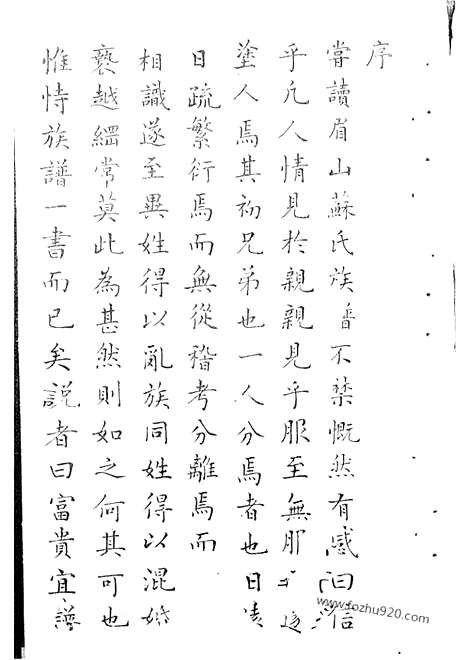 序
嘗讀眉山蘇氏族譜不禁慨然有感曰信
乎凡人情見於親親見乎服至無服
塗人焉其初兄弟也一人分焉者也日
日疏繁衍焉而無從稽考分離焉而
相識遂至異姓得以亂族同姓得以混婚
褻越綱常莫此為甚然則如之何其可也
惟恃族譜一書而已矣説者曰富貴宜譜
www.fozhu920.com